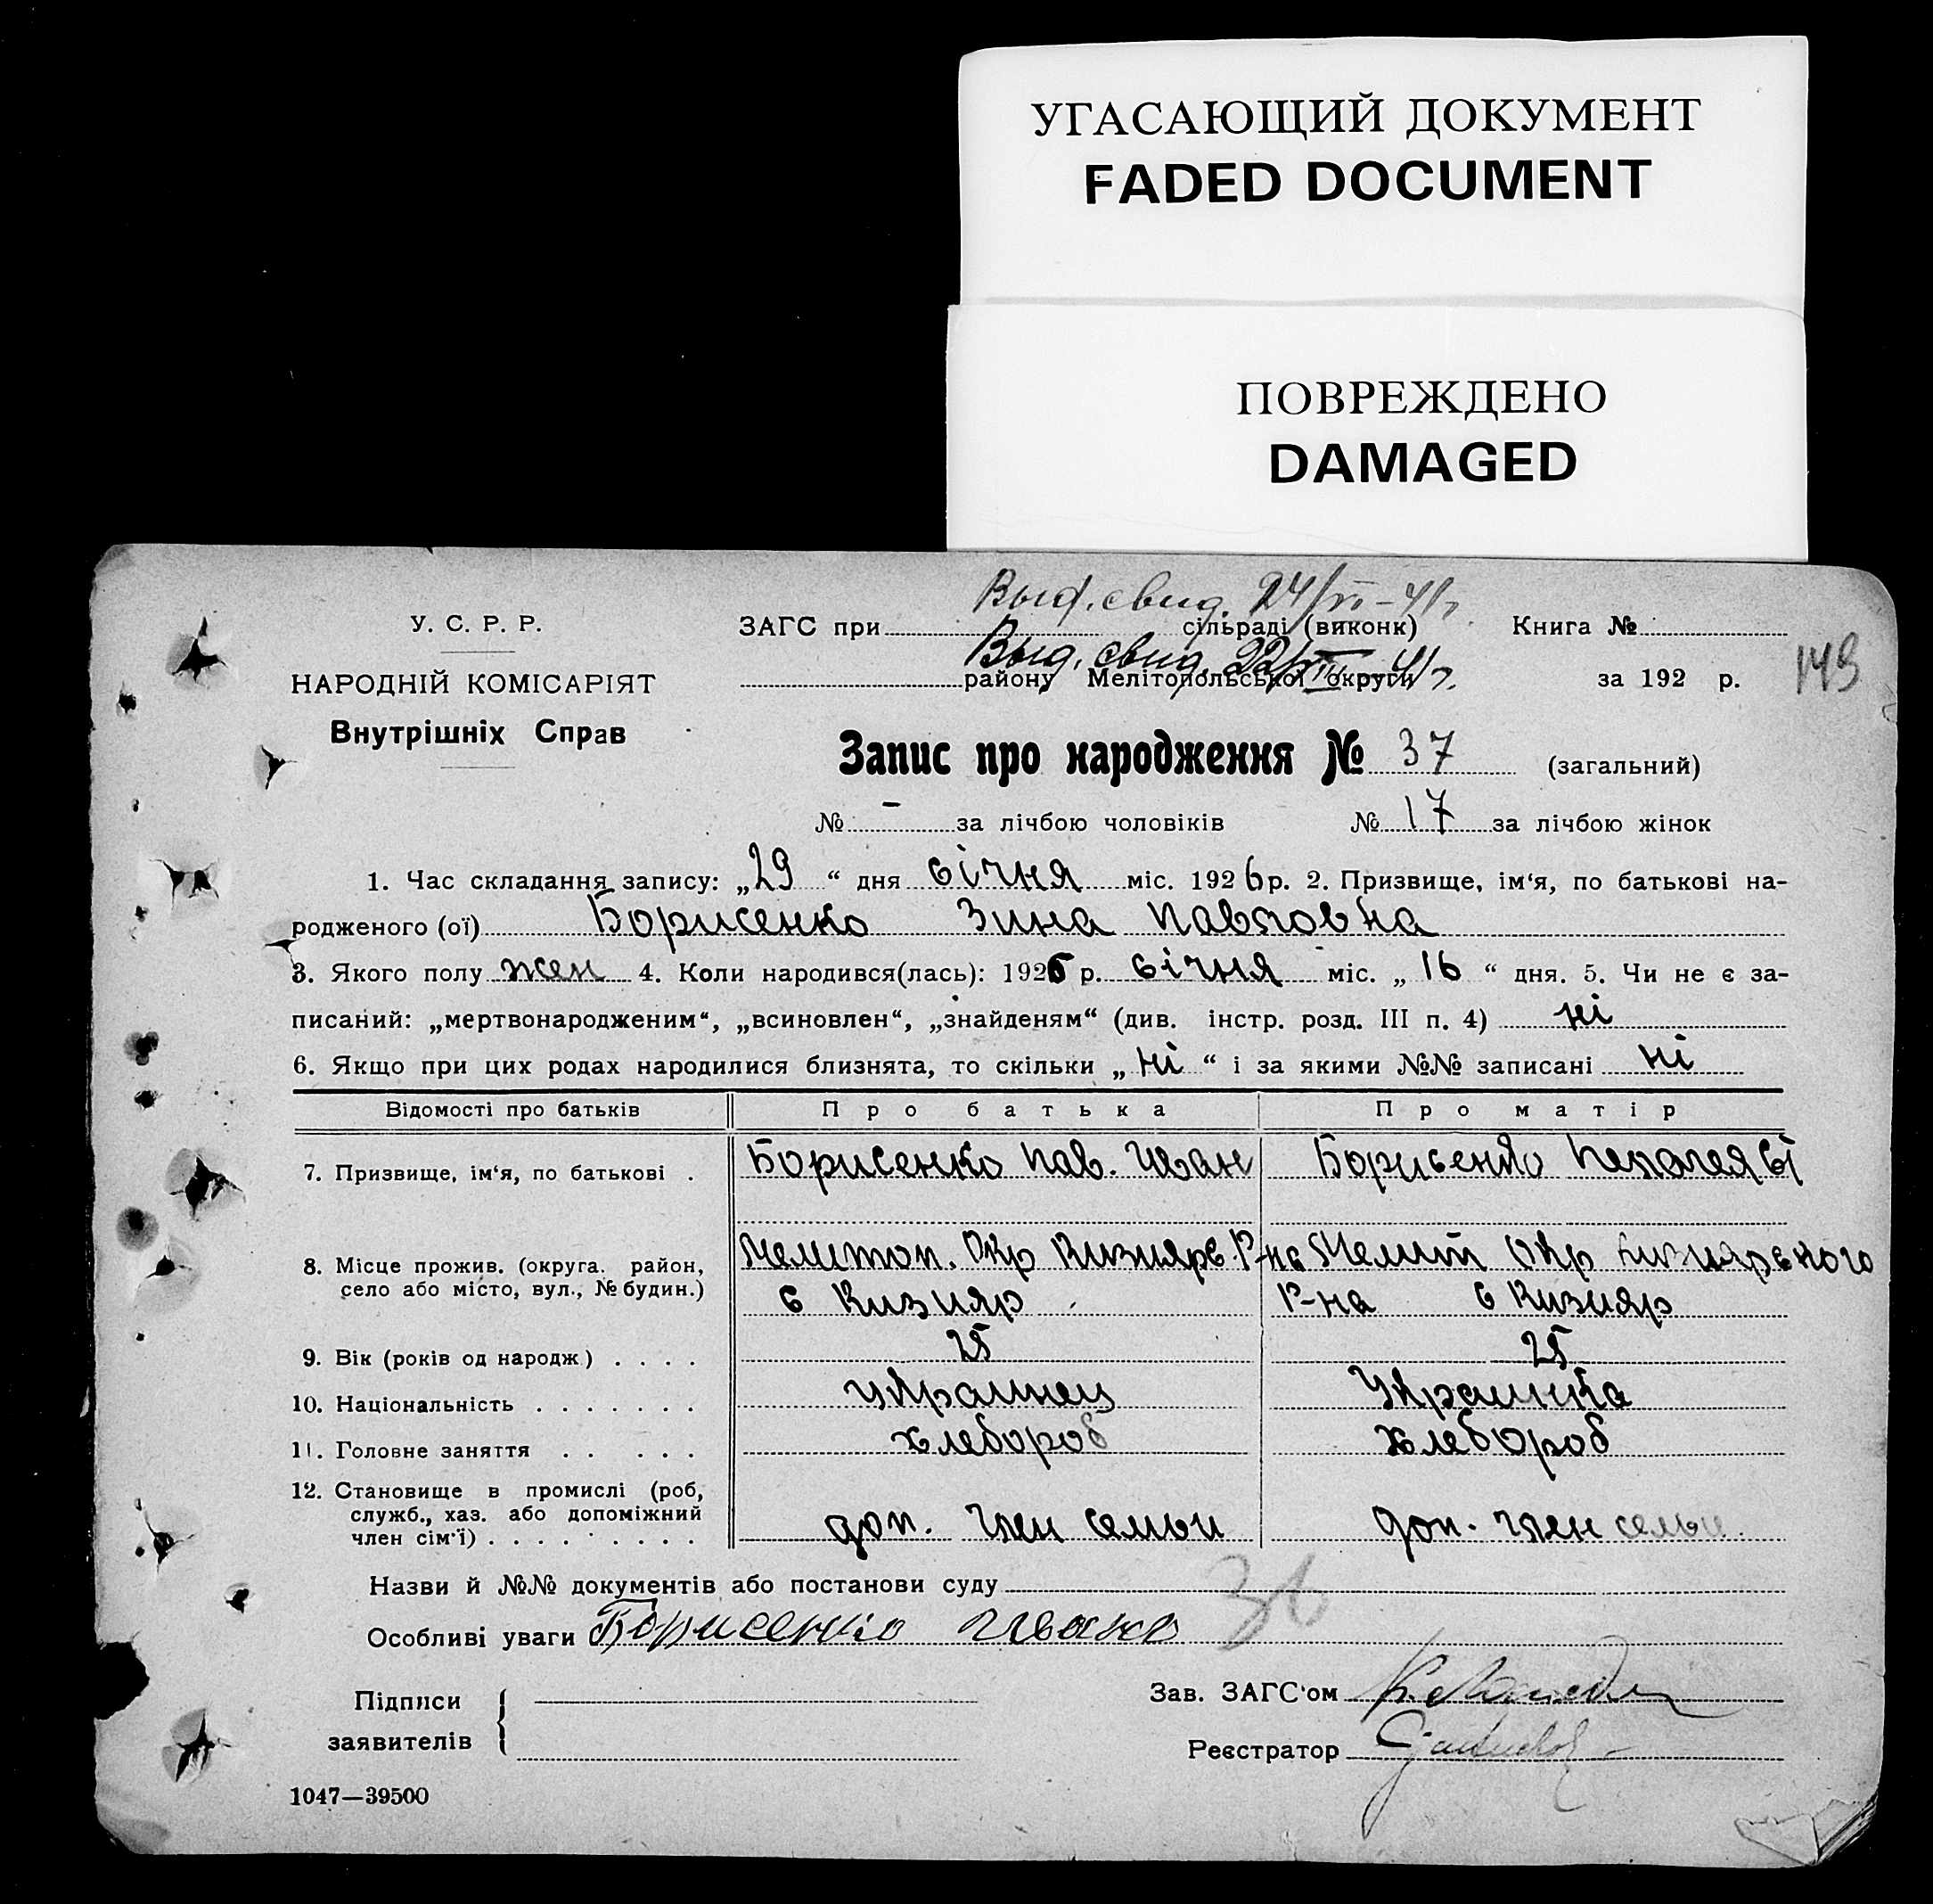 УГАСАЮЩИЙ ДОКУМЕНТ
FADED DOCUMENT
ПОВРЕЖДЕНО
DAMAGED
Выд. свид. 24/VI-41г.
У. С. Р. Р.
ЗАГС при сільраді (виконк) Книга №
Выд. свид. 22/VIII 41г.
НАРОДНІЙ КОМІСАРІЯТ
району Мелітопольської округи за 192 р. 149
Внутрішніх Справ
Запис про народження № 37 (загальний)
№ - за лічбою чоловіків № 17 за лічбою жінок
1. Час складання запису: „29“ дня січня міс. 1926 р. 2. Призвище, ім'я, по батькові на-
родженого (ої) Борисенко Зина Павловна
3. Якого полу жен 4. Коли народився(лась): 1926 р. січня міс. „16“ дня. 5. Чи не є за-
писаний: „мертвонародженим“, „всиновлен“, „знайденям“ (див. інстр. розд. III п. 4) ні
6. Якщо при цих родах народилися близнята, то скільки „ні“ і за якими №№ записані ні
Відомості про батьків Про батька Про матір
7. Призвище, ім'я, по батькові . Борисенко Пав. Иван Борисенко
8. Місце прожив. (округа. район, Мелитоп. Окр Кизиярс. Р-на Мелит Окр Кизиярского
село або місто, вул., № будин.) с Кизияр Р-на с Кизияр
9. Вік (років од народж.) . . . . 25 25
10. Національність . . . . . . . Украинец Украинка
11. Головне заняття . . . . . хлебороб хлебороб
12. Становище в промислі (роб,
служб., хаз. або допоміжний
член сім'ї) . . . . . . . . доп. член семьи доп. член семьи
Назви й №№ документів або постанови суду
36
Особливі уваги Борисенко Ивано
Підписи
заявителів
Зав. ЗАГС'ом
Реєстратор
1047—39500